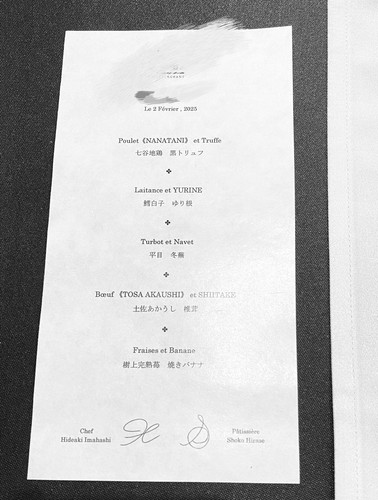 Le 2 Février , 2025
Poulet《NANATANI》 et Truffe
七谷地鶏　黒トリュフ
Laitance et YURINE
鱈白子　ゆり根
Turbot et Navet
平目　冬蕪
Bœuf 《TOSA AKAUSHI》 et SHIITAKE
土佐あかうし　椎茸
Fraises et Banane
樹上完熟苺　焼きバナナ
Chef
Hideaki Imahashi
Pâtissière
Shoko Hirase